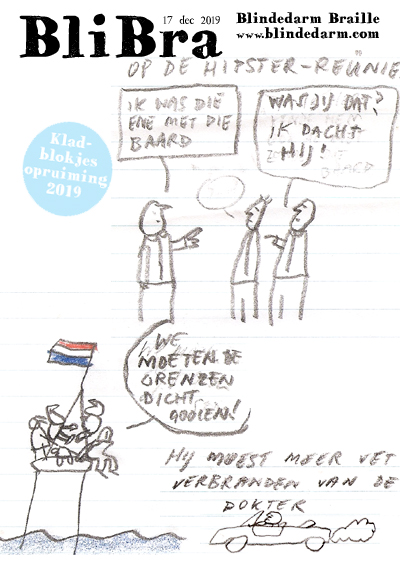 BliBra
17 dec 2019
Blindedarm Braille
www.blindedarm.com
OP DE HIPSTER-REUNIE
IK WAS DIE
ENE MET DIE
BAARD
WAS JIJ DAT?
IK DACHT
HIJ!
Klad-
blokjes
opruiming
2019
WE
MOETEN DE
GRENZEN
DICHT
GOOIEN!
HIJ MOEST MEER VET
VERBRANDEN VAN DE
DOKTER